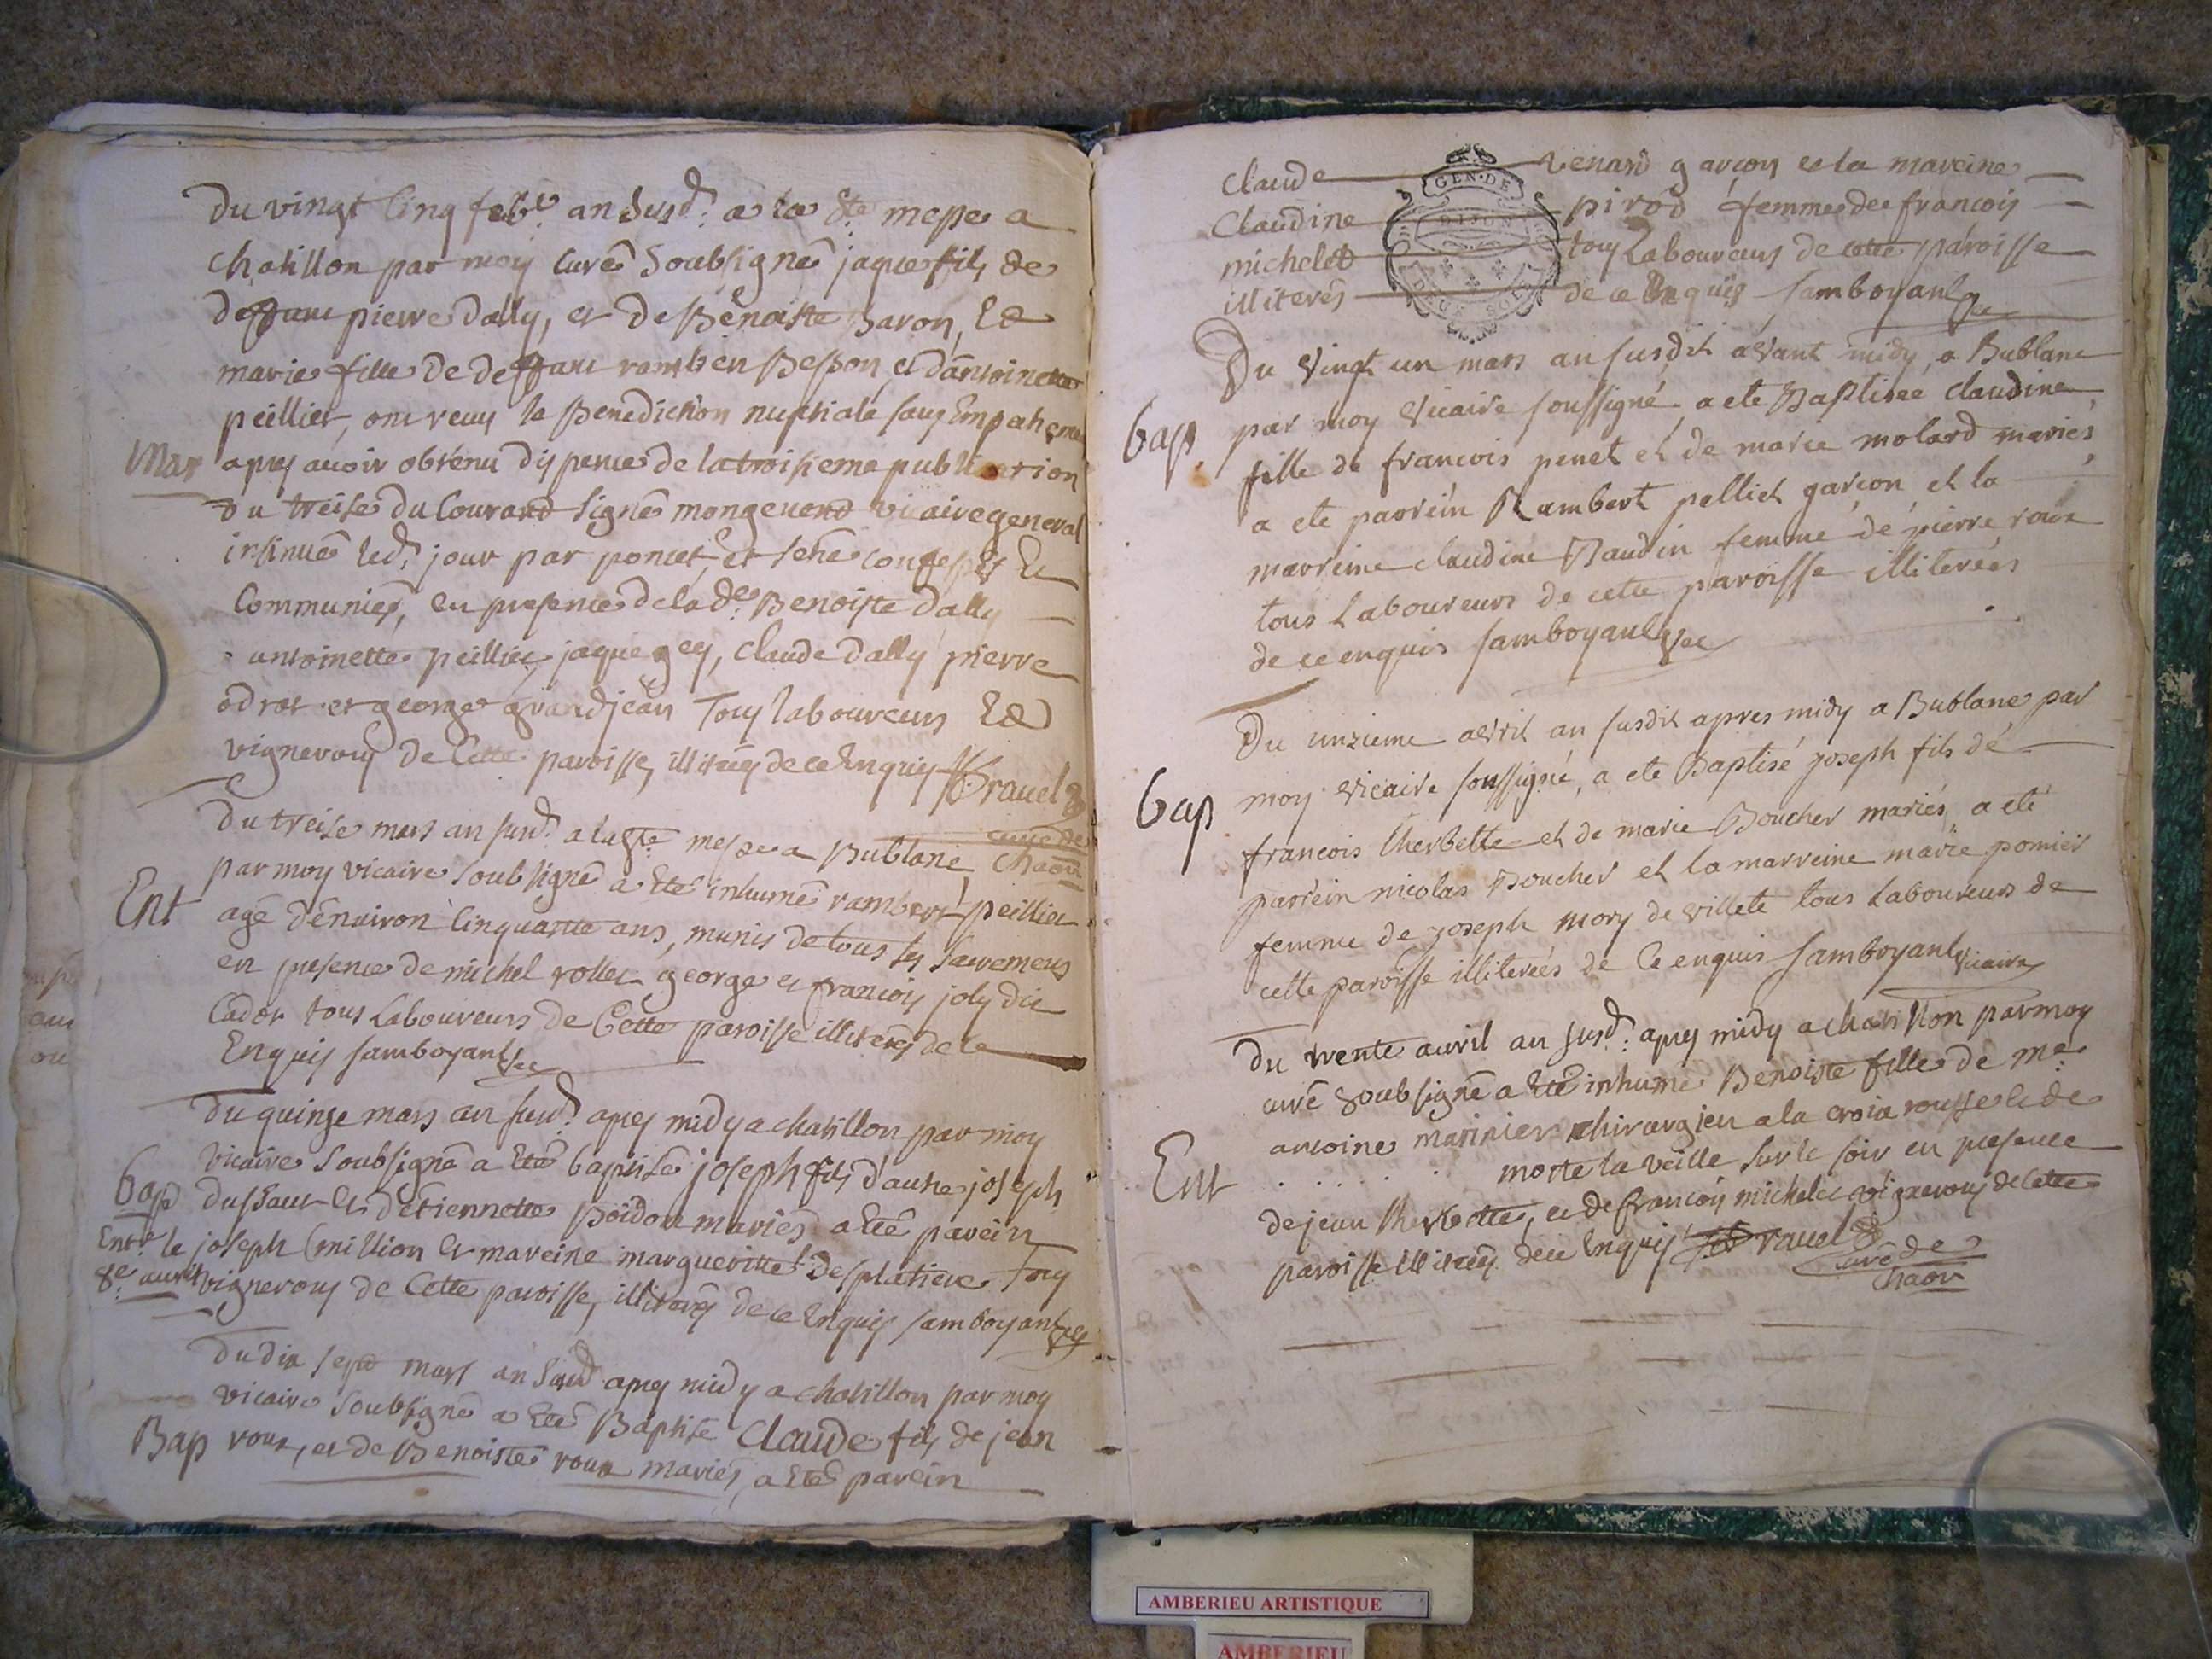 Du vingt Cinq febr. an Susd. a la Ste messe a
chatillon par moy Curé Soubsigné jaque fils de
deffunt pierre dally, et de Benoiste Baron, Et
marie fille de deffunt Besson et dantoinette
peillier, ont receu la Benediction nuptiale sans Empachement
Mar
apres avoir obtenu dispence de la troisieme publication
du treise du Courant Signé mongenend vicaire general
insinuée led. jour par poncet, et confesses Et
Communiés, en presence de lad. Benoiste dally
antoinette peillier, jaque gey, Claude dally pierre
odrat et george grandjean Tous laboureurs Et
vignerons de Cette paroisse, illiterés de ce Enquis Ravel
curé de
chaon
Du treise mars an susd. a la Ste messe a Bublane,
par moy vicaire Soubsigné a eté inhumé rambert peillier
Ent
agé denuiron Cinquante ans, munis de tous les Sacremens
en presence de michel rollet george et francois joly dit
Cador tous Laboureurs de Cette paroisse illiterés de ce
Enquis Samboyant vic
Du quinze mars an susd. apres midy a chatillon par moy
vicaire Soubsigné a eté baptisé joseph fils d'autre joseph
Bap
dussaut et d'etiennette poidon mariés a eté parein
Ent. le
8e avril
joseph million et mareine margueritte desplatiere Tous
vignerons de Cette paroisse, illiterés de ce Enquis Samboyant vic
Du dix sept mars an Susd. apres midy a chatillon par moy
vicaire Soubsigné a eté Baptisé Claude fils de jean
Bap
roux, et de Benoiste roux mariés, a eté parein
Claude venard garcon et la mareine
Claudine pirod femme de francois
michelet tous Laboureurs de cette paroisse
illiterés de ce Enquis Samboyant vic
GEN·DE
DIJON
DEUX SOLS
Du vingt un mars an susdit avant midy, a Bublane
Bap
par moy vicaire soussigné, a eté Baptisée Claudine
fille de francois penet et de marie molard mariés,
a eté parrein Rambert pelliet garcon et la
marreine claudine Baudin femme de pierre roux
tous Laboureurs de cette paroisse illiterées
de ce enquis Samboyant vic
Du unzieme avril an susdit apres midy a Bublane par
Bap
moy vicaire soussigné, a eté Baptisé joseph fils de
francois Therbette et de marie Boucher mariés, a eté
parrein nicolas Boucher et la marreine marie pomier
femme de joseph mory de villete tous Laboureurs de
cette paroisse illiterées de Ce enquis Samboyant vicaire
Du trente avril an susd. apres midy a chatillon par moy
curé Soubsigné a eté inhumé Benoiste fille de me
antoine marinier chirurgien a la croix rousse
Ent
morte la veille sur le soir en presence
de jean Therbette, et de francois michelet vignerons de Cette
paroisse illiterés de ce Enquis Ravel
curé de
chaon
AMBERIEU ARTISTIQUE
AMBERIEU